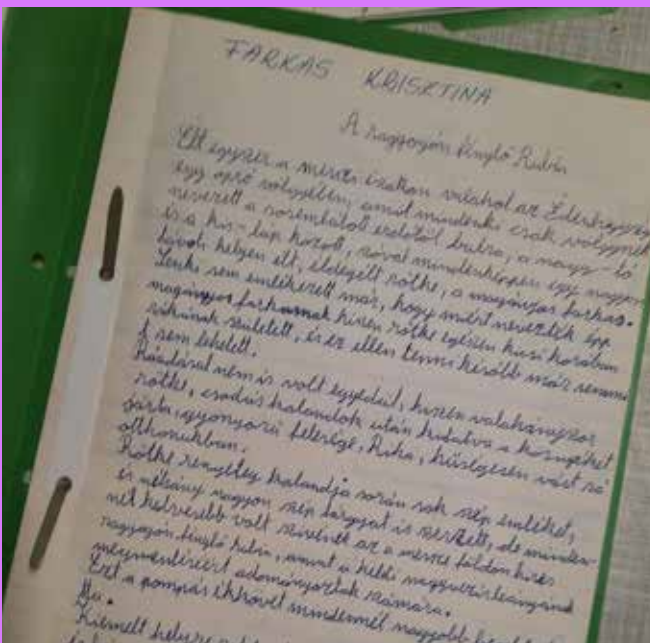 FARKAS KRISZTINA
A ragyogón fénylő Rubin
Élt egyszer a messzi északon valahol az Élenhegység
egy apró völgyében, amit mindenki csak völgynek
nevezett a sosemlátott erdőtől balra, a nagy-tó
és a kis-láp között, szóval mindenképpen egy nagyon
távoli helyen élt, éldegélt rőtke, a magányos farkas.
Senki sem emlékezett már, hogy miért nevezték épp
magányos farkasnak hiszen rőtke egészen kicsi korában
rókának született, és ez ellen tenni később már semmi
t sem lehetett.
Ráadásul nem is volt egyedül, hiszen valahányszor
rőtke, csodás kalandok után kutatva a környéket
járta, gyönyörű felesége, Rika, hűségesen várt rá
otthonukban.
Rőtke rengeteg kalandja során sok szép emléket,
és néhány nagyon szép tárgyat is szerzett, de minden-
nél kedvesebb volt szívének az a messze földön híres
ragyogón fénylő rubin, amit a keldi nagyvezír leányának
megmentéséért adományoztak számára.
Ezt a pompás ékkövet mindennél nagyobb
tta.
Kiemelt helyre